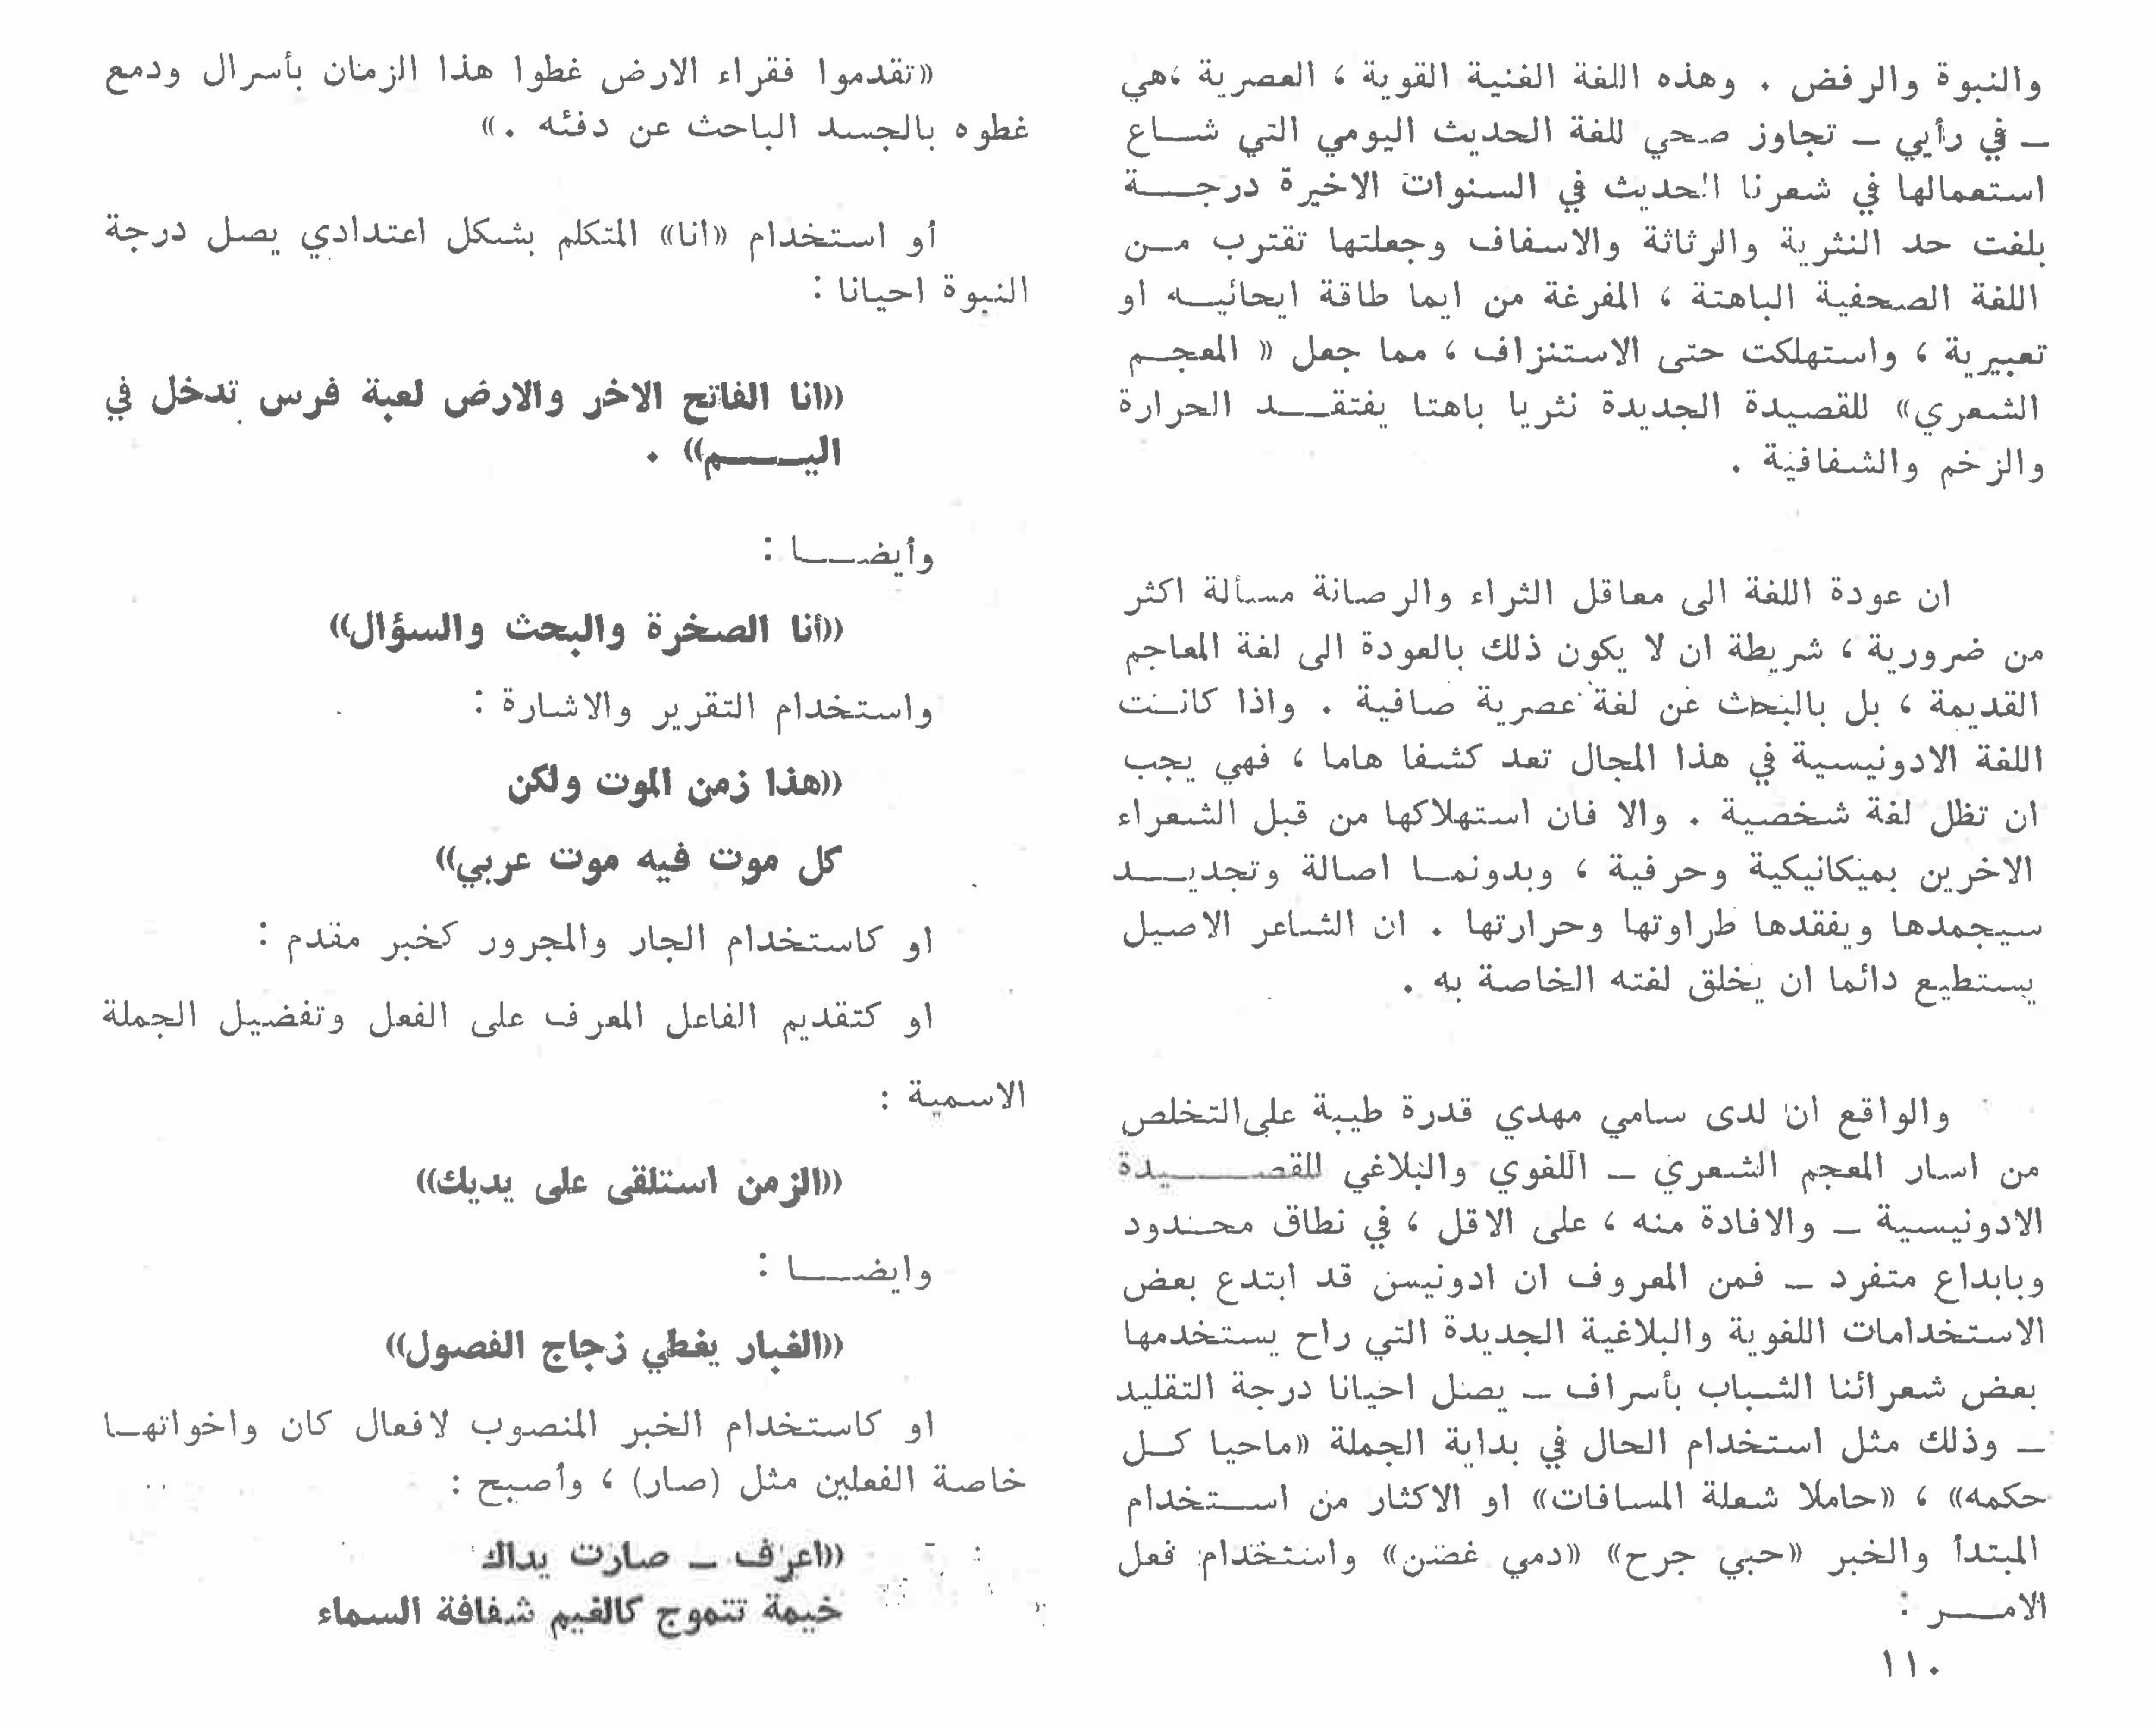 والنبوة والرفض . وهذه اللغة الغنية القوية ، العصرية ،هي
– في رأيي – تجاوز صحي للغة الحديث اليومي التي شـــاع
استعمالها في شعرنا الحديث في السنوات الاخيرة درجــــة
بلغت حد النثرية والرثاثة والاسفاف وجعلتها تقترب مــن
اللغة الصحفية الباهتة ، المفرغة من ايما طاقة ايحائيــه او
تعبيرية ، واستهلكت حتى الاستنزاف ، مما جعل « المعجــم
الشعري» للقصيدة الجديدة نثريا باهتا يفتقــــد الحرارة
والزخم والشفافية .
ان عودة اللغة الى معاقل الثراء والرصانة مسألة اكثر
من ضرورية ، شريطة ان لا يكون ذلك بالعودة الى لغة المعاجم
القديمة ، بل بالبحث عن لغة عصرية صافية . واذا كانــت
اللغة الادونيسية في هذا المجال تعد كشفا هاما ، فهي يجب
ان تظل لغة شخصية . والا فان استهلاكها من قبل الشعراء
الاخرين بميكانيكية وحرفية ، وبدونمــا اصالة وتجديــــد
سيجمدها ويفقدها طراوتها وحرارتها . ان الشاعر الاصيل
يستطيع دائما ان يخلق لغته الخاصة به .
والواقع ان لدى سامي مهدي قدرة طيبة على التخلص
من اسار المعجم الشعري – اللغوي والبلاغي للقصـــــــيدة
الادونيسية – والافادة منه ، على الاقل ، في نطاق محــدود
وبابداع متفرد – فمن المعروف ان ادونيس قد ابتدع بعض
الاستخدامات اللغوية والبلاغية الجديدة التي راح يستخدمها
بعض شعرائنا الشباب بأسراف – يصل احيانا درجة التقليد
– وذلك مثل استخدام الحال في بداية الجملة «ماحيا كــل
حكمه» ، «حاملا شعلة المسافات» او الاكثار من استــخدام
المبتدأ والخبر «حبي جرح» «دمي غصن» واستخدام فعل
الامــــر :
١١٠
«تقدموا فقراء الارض غطوا هذا الزمان بأسرال ودمع
غطوه بالجسد الباحث عن دفئه .»
أو استخدام «انا» المتكلم بشكل اعتدادي يصل درجة
النبوة احيانا :
«انا الفاتح الاخر والارض لعبة فرس تدخل في
اليـــــم» .
وأيضــــا :
«أنا الصخرة والبحث والسؤال»
واستخدام التقرير والاشارة :
«هذا زمن الموت ولكن
كل موت فيه موت عربي»
او كاستخدام الجار والمجرور كخبر مقدم :
او كتقديم الفاعل المعرف على الفعل وتفضيل الجملة
الاسمية :
«الزمن استلقى على يديك»
وايضــــا :
«الغبار يغطي زجاج الفصول»
او كاستخدام الخبر المنصوب لافعال كان واخواتهــا
خاصة الفعلين مثل (صار) ، وأصبح :
«اعرف – صارت يداك
خيمة تتموج كالغيم شفافة السماء